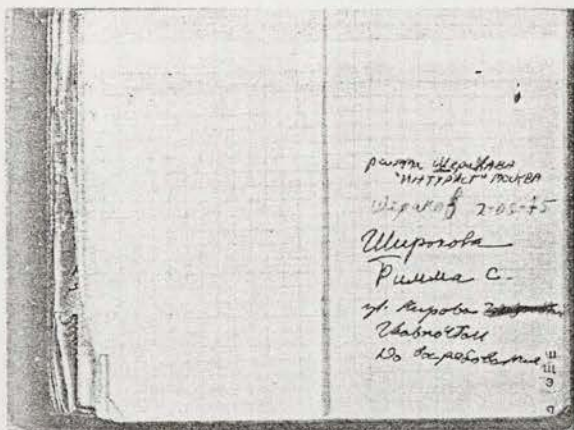 римма Шеракава
"ИНТУРИСТ" МОСКВА
Шираков 2-05-75
Широкова
Римма С.
ул. Кирова
Главпочтам
До востребования
Ш
Щ
Э